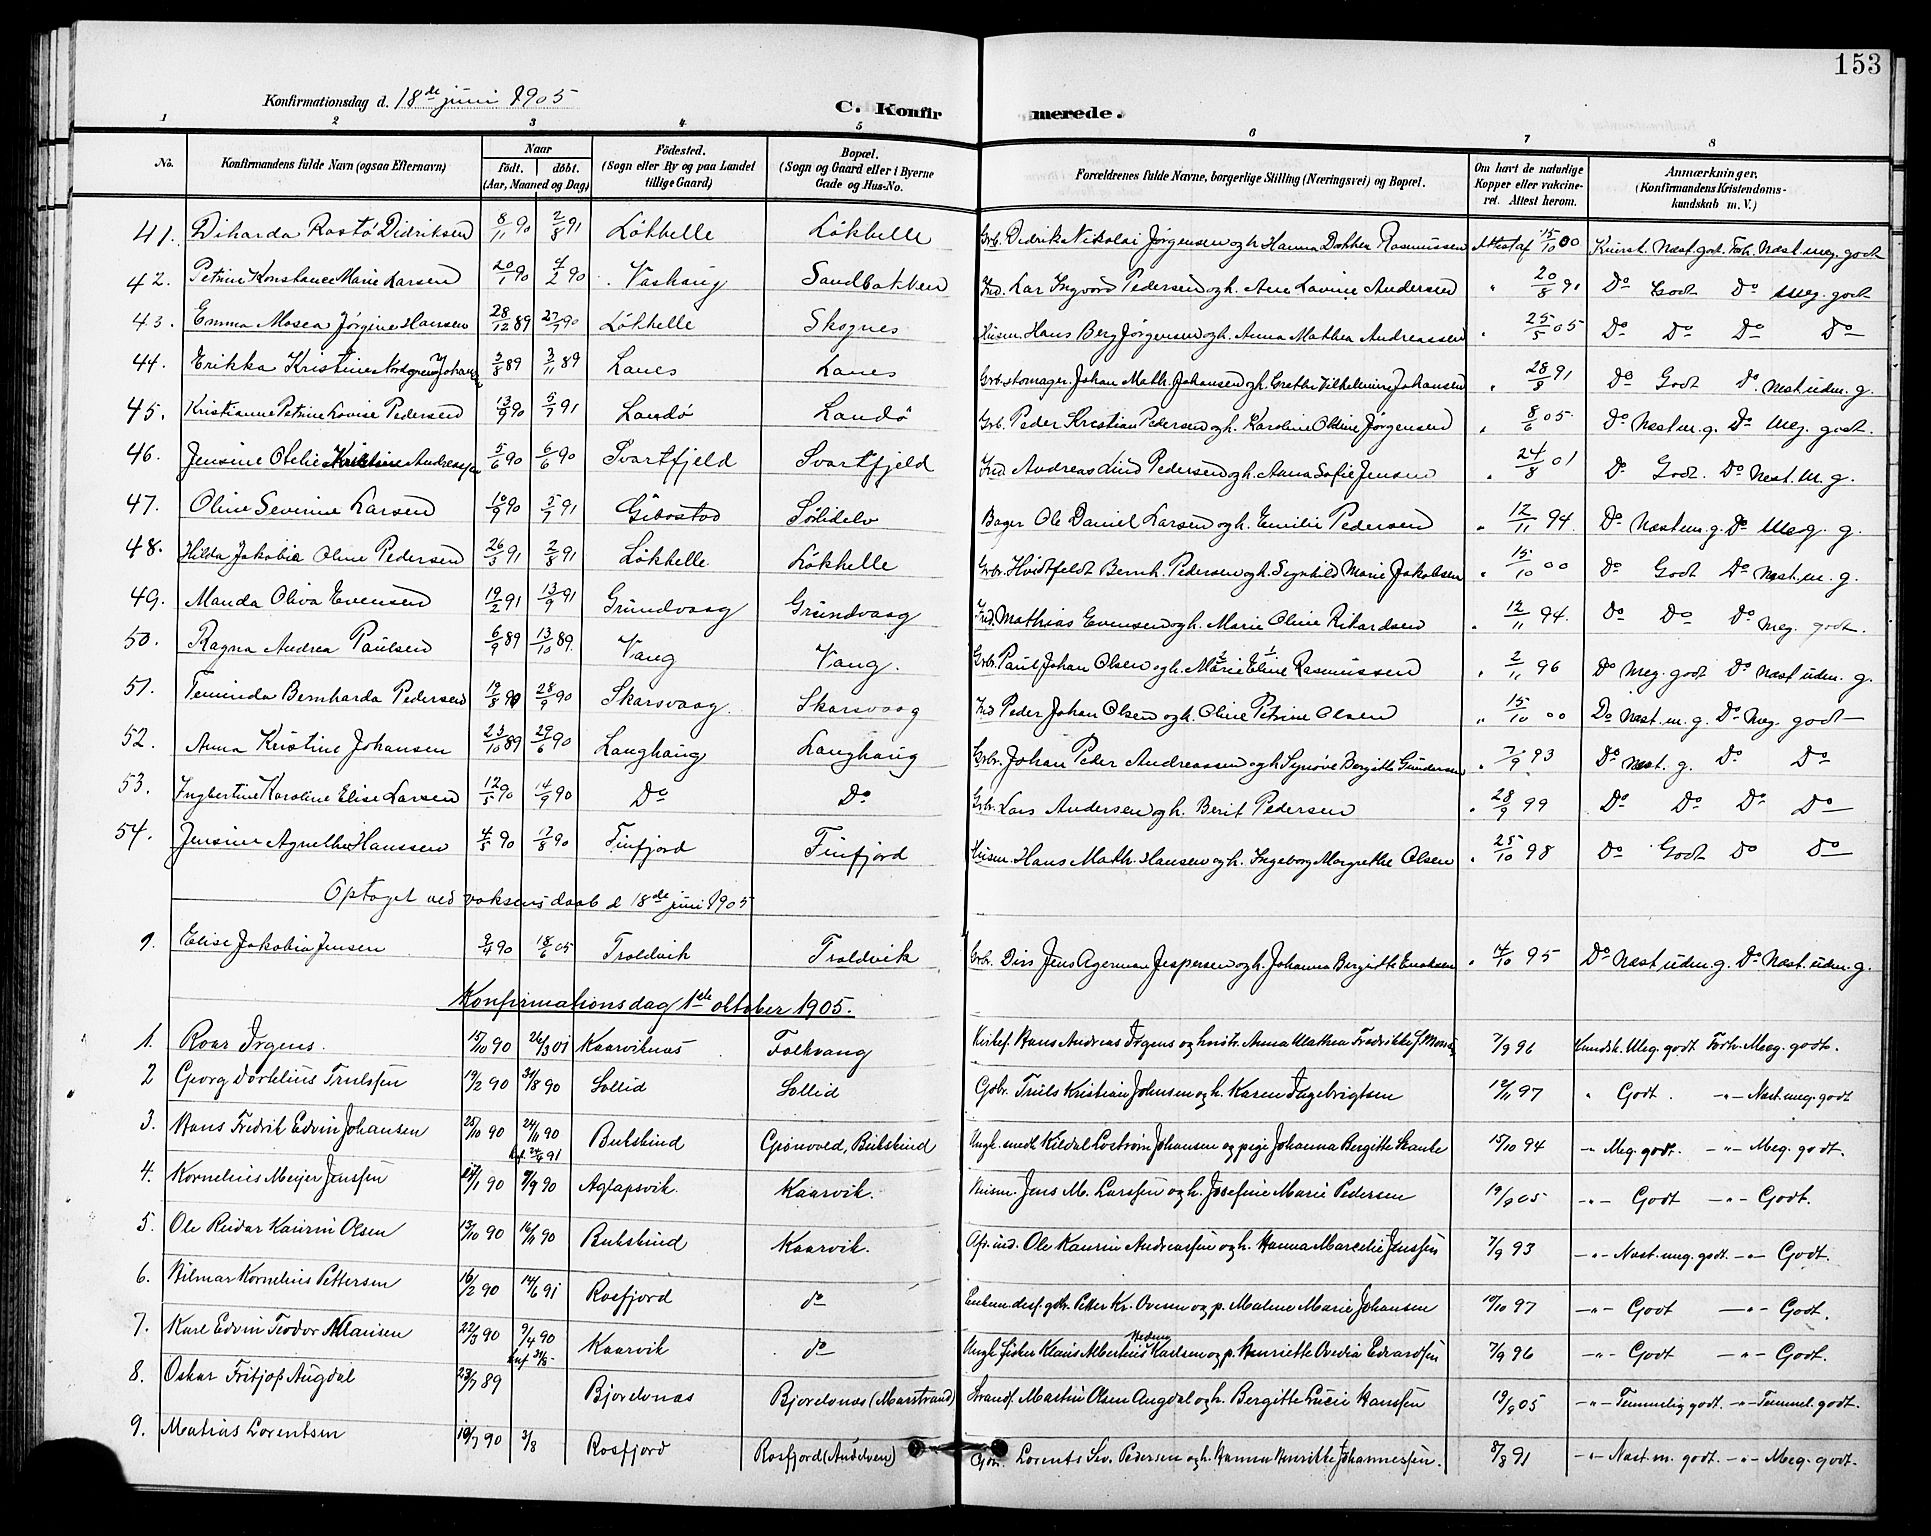 153
Konfirmationsdag d. 18de juni 1905
C. Konfirmerede.
1 2 3 4 5 6 7 8
No. Konfirmandens fulde Navn (ogsaa Efternavn) Naar født. døbt. (Aar, Maaned og Dag) Fødested. (Sogn eller By og paa Landet tillige Gaard) Bopæl. (Sogn og Gaard eller i Byerne Gade og Hus-No. Forældrenes fulde Navne, borgerlige Stilling (Næringsvei) og Bopæl. Om havt de naturlige Kopper eller vakcineret. Attest herom. Anmærkninger. (Konfirmandens Kristendomskundskab m. V.)
41. Dikarda Rastö Didriksen 8/11 90 2/8 91 Løkhelle Løkhelle Grb. Didrik Nikolai Jørgensen og h. Hanna Dorthea Rasmussen Attest af 15/10 00 Kunsk. Næst. godt. Forh. Næst. meg. godt
42. Petrine Konstance Marie Larsen 20/1 90 4/2 90 Vashaug Sandbakken Ind. Lar Ingvard Pedersen og h. Ane Lovine Andersen " 20/8 91 Do Godt Do Meg. godt
43. Emma Mosea Jørgine Hansen 28/12 89 27/7 90 Løkhelle Skognes Husm. Hans Berg Jørgensen og h. Anna Mathea Andreassen " 25/5 05 Do Do Do Do
44. Erikka Kristine Nordgren Johans 3/8 89 3/11 89 Lanes Lanes Grb. stomager Johan Math. Johansen og h. Grethe Vilhelmine Johansen " 28/9 91 Do Godt Do Næst uden. g.
45. Kristianne Petrine Lovise Pedersen 13/9 90 5/7 91 Landö Landö Grb. Peder Kristian Pedersen og h. Karoline Oldine Jørgensen " 8/6 05 Do Næst m. g. Do Meg. godt.
46. Jensine Otelie Kristine Andreassen 5/6 90 6/6 90 Svartfjeld Svartfjeld Ind. Andreas Lind Pedersen og h. Anna Sofie Jensen " 24/8 01 Do Godt. Do Næst. m. g.
47. Oline Severine Larsen 10/9 90 5/7 91 Gibostad Solidelv Bager Ole Daniel Larsen og h. Emilie Pedersen " 12/11 94. Do Næst m. g. Do Meg. g.
48. Hilda Jakobia Oline Pedersen 26/3 91 2/8 91 Løkhelle. Løkhelle Grb. Hvidtfeldt Bernh. Pedersen og h. Signhild Marie Jakobsen " 15/10 00 Do Godt Do Næst. m. g.
49. Manda Oliva Evensen 19/2 91 13/9 91 Grundvaag Grundvaag Ind. Mathias Evensen og h. Marie Oline Rikardsen " 12/11 94. Do Do Do Meg. godt.
50. Ragna Andrea Paulsen 6/9 89 13/10 89. Vang Vang. Grbr. Paul Johan Olsen og h. Marie Eline Rasmussen " 2/11 96 Do Meg. godt Do Næst uden. g.
51. Teminda Bernharda Pedersen 19/8 90 28/9 90 Skarsvaag. Skarsvaag Ind Peder Johan Olsen og h. Oline Petrine Olsen " 15/10 00 Do Næst. m. g. Do Meg. godt
52. Anna Kristine Johansen 23/10 89 29/6 90 Langhaug Langhaug Grbr. Johan Peder Andreassen og h. Synöve Bergitte Gundersen " 7/9 93 Do Næst. g. Do Do
53. Ingbertine Karoline Elise Larsen 12/5 90 14/9 90 Do Do Grb. Lars Andersen og h. Berit Pedersen " 28/9 99 Do Do Do Do
54. Jensine Agnethe Hanssen 4/5 90 17/8 90 Finfjord Finfjord Husm. Hans Math. Hansen og h. Ingeborg Margrethe Olsen " 25/10 98 Do Godt Do Do
Optaget ved voksensdaab d 18de juni 1905
1. Elise Jakobia Jensen 9/4 90 18/6 05 Troldvik Troldvik Grbr. Dirs Jens Agerman Jespersen og h. Johanna Bergitte Enoksen " 14/10 95 Do Næst uden. g. Do Næst. uden. g.
Konfirmationsdag 1ste oktober 1905.
1. Roar Irgens. 15/10 90 26/3 01 Kaarviknæs Folkvang Kirkes. Hans Andreas Irgens og hustr. Anna Mathea Fredrikke f. 7/9 96 Kundsk. Meg. godt Forh. Meg. godt.
2 Georg Dortelius Trulssen 19/2 90 31/8 90 Sollid Sollid Gbr. Truls Kristian Johnsen og h. Karen Ingebrigtsen 12/11 97 " Godt. -"- Næst. meg. godt
3. Hans Fredrik Edvin Johansen 25/10 90 24/11 90 Bukskind Grønvold, Bukskind Ungk. smed Kildal Lostrøm Johansen og pige Johanna Bergitte Skanke 15/10 94 -"- Meg. godt. -"- Meg. godt.
4. Kornelius Meijer Jenssen 24/1 90 7/9 90 Aglapsvik. Kaarvik. Husm. Jens M. Larssen og h. Josefine Marie Pedersen 19/9 05 -"- Godt -"- Godt.
5. Ole Reidar Kaurin Olsen 13/10 90 16/11 90 Bukskind Kaarvik. Afs. ind. Ole Kaurin Andreassen og h. Hanna Marcelie Jenssen 7/9 93 -"- Næst. meg. godt. -"- Godt.
6. Hilmar Kornelius Pettersen 16/2 90 14/6 91 Rosfjord do Enkem. gbr. Petter Kr. Ovesen og p. Malene Marie Johansen 10/10 97 -"- Godt -"- Godt.
7. Karl Edvin Teodor Klausen 22/3 90 9/4 90 Kaarvik do Ungk. fisker Klaus Albertius Hedevig Karlsen og p. Henriette Ovedia Edvardsen 7/9 96 -"- Godt -"- Godt.
8. Oskar Fritjof Augdal 23/7 89 Bjorelvnæs Bjorelvnæs (Marstrand) Strands. Martin Olsen Augdal og h. Bergitte Lucie Hanssen 19/9 05 -"- Temmelig godt. -"- Temmel. godt.
9. Matias Lorentsen 10/7 90 3/8 Rosfjord Rosfjord (Andelven) Gbr. Lorents Sev. Pedersen og h. Hanna Henrikke Johannessen. 8/8 91 -"- Næst. m. godt. -"- Meg. godt.